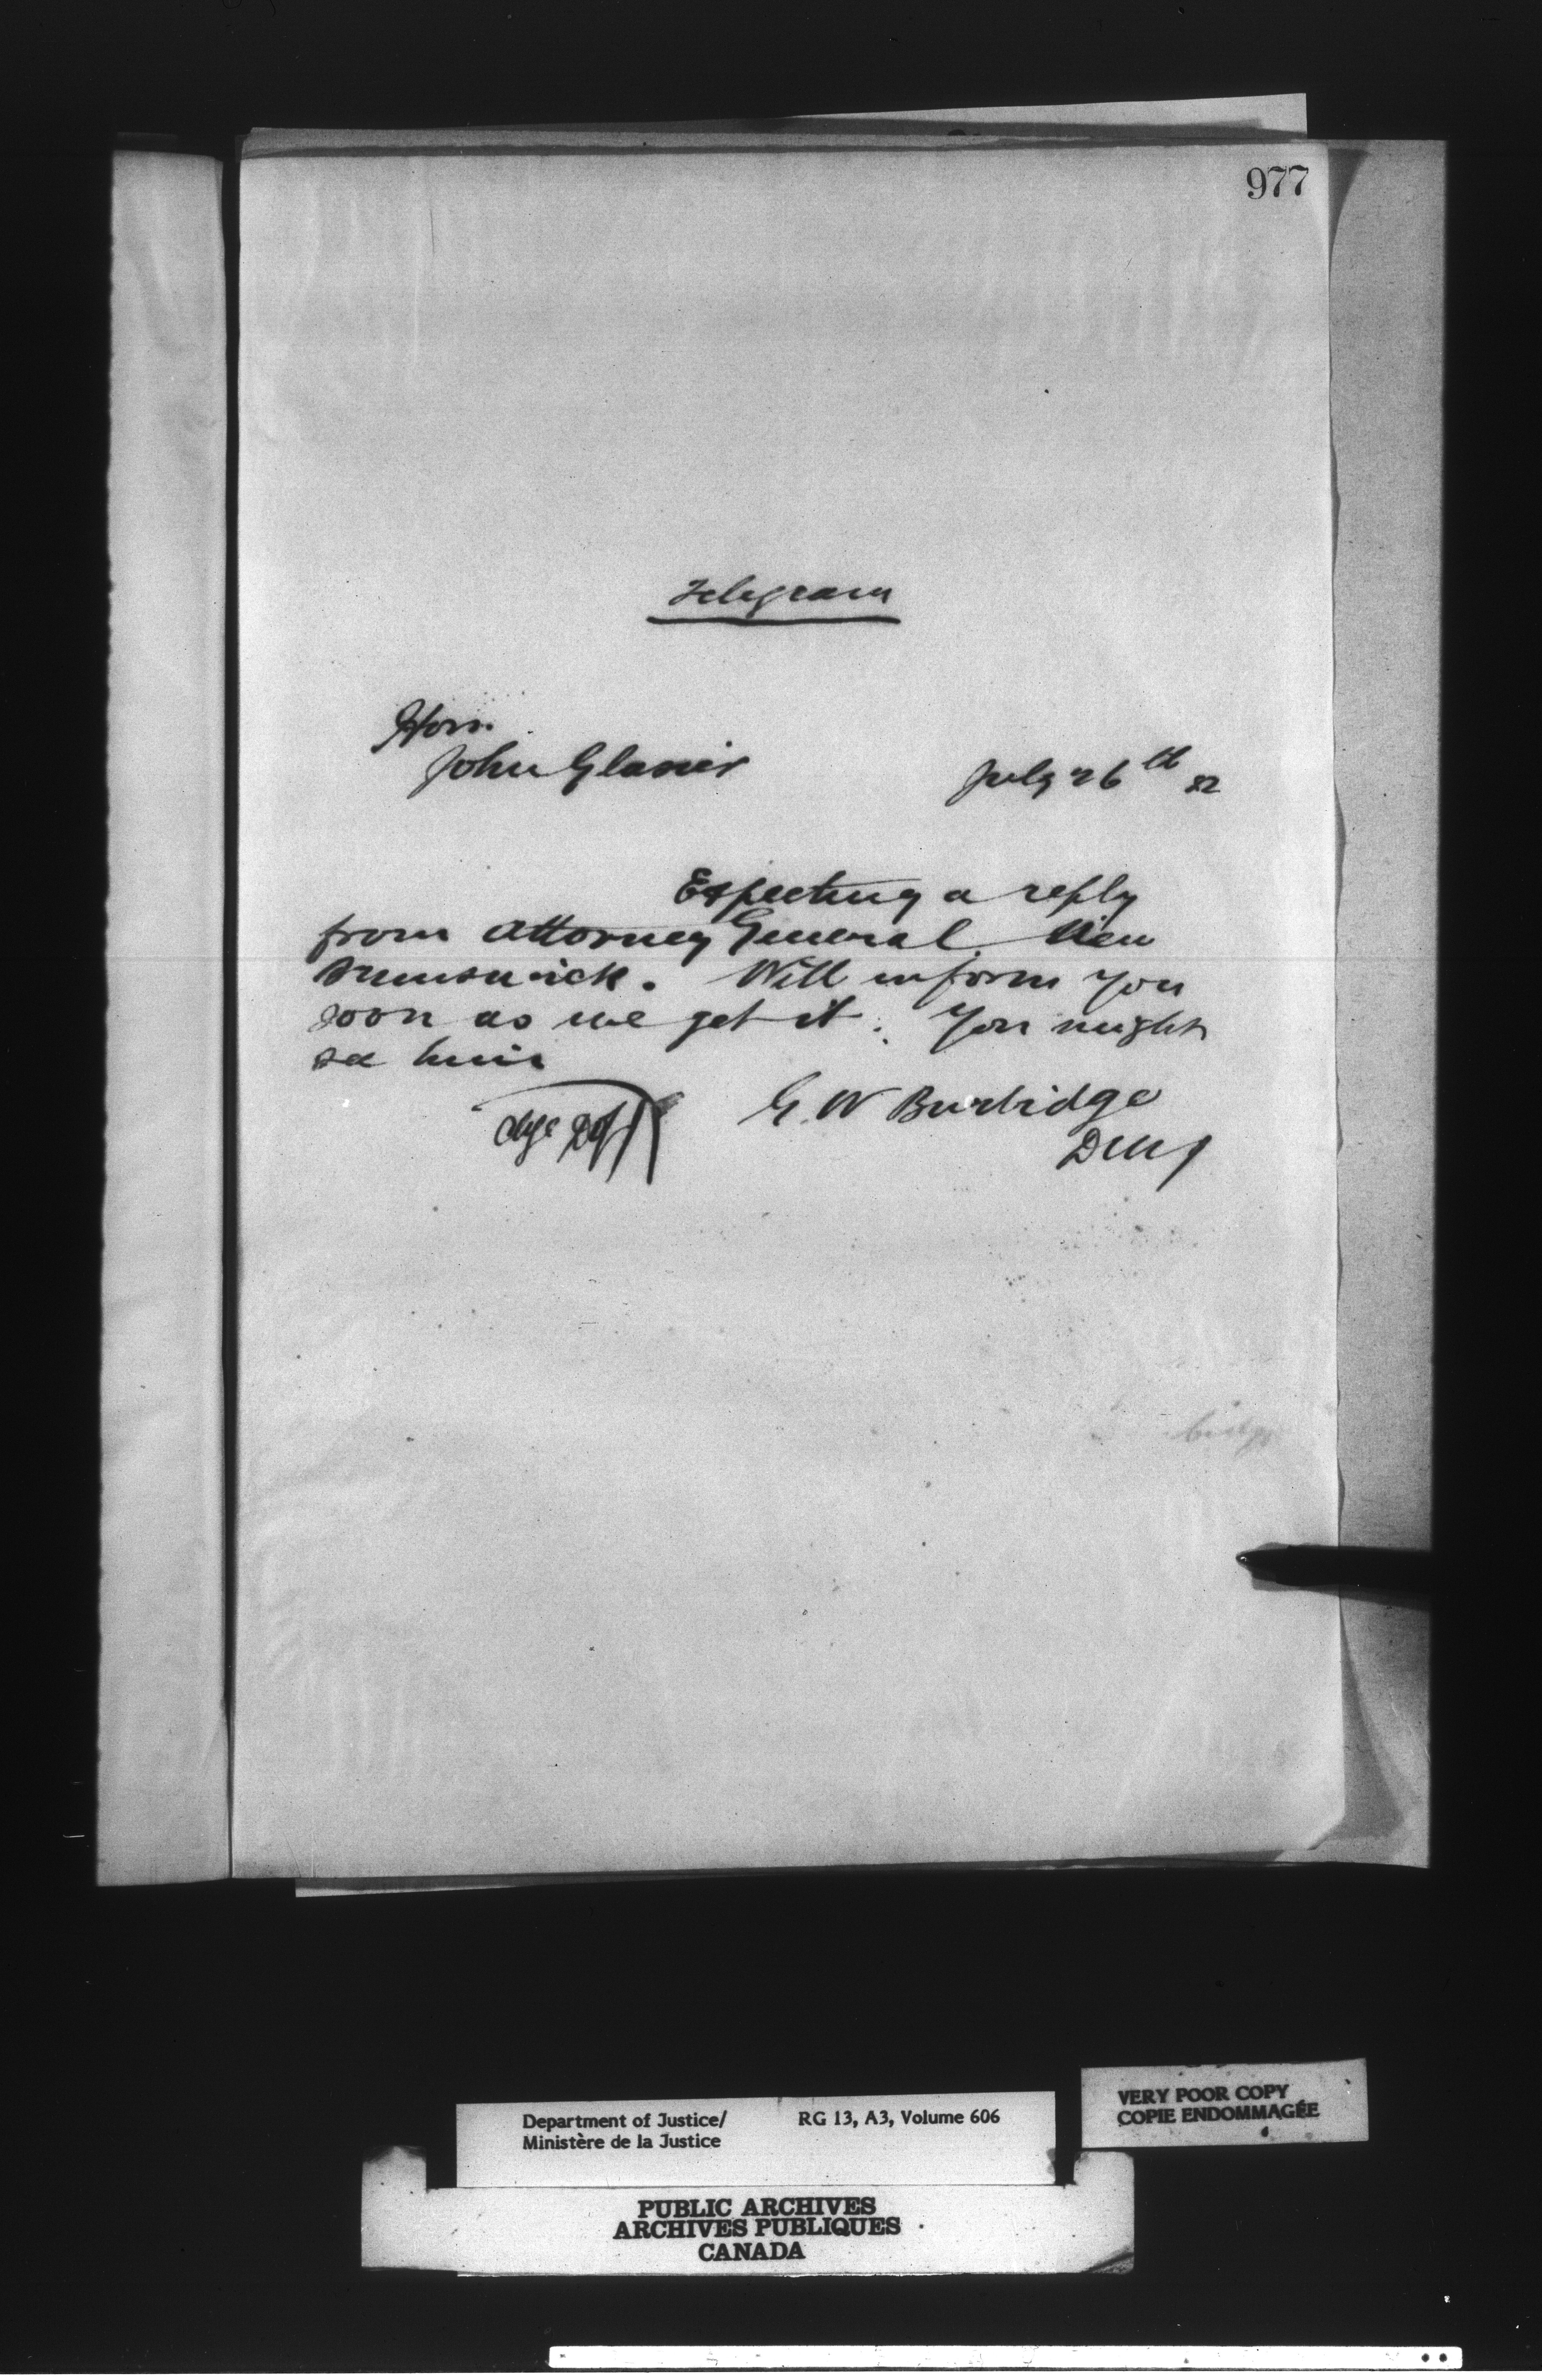 977
Telegram
Hon.
John Glasier
July 26th 82
Expecting a reply
from Attorney General New
Brunswick. Will inform you
soon as we get it. You might
see him
G. W Burbidge
DMJ
Department of Justice/
Ministère de la Justice
RG 13, A3, Volume 606
VERY POOR COPY
COPIE ENDOMMAGÉE
PUBLIC ARCHIVES
ARCHIVES PUBLIQUES
CANADA